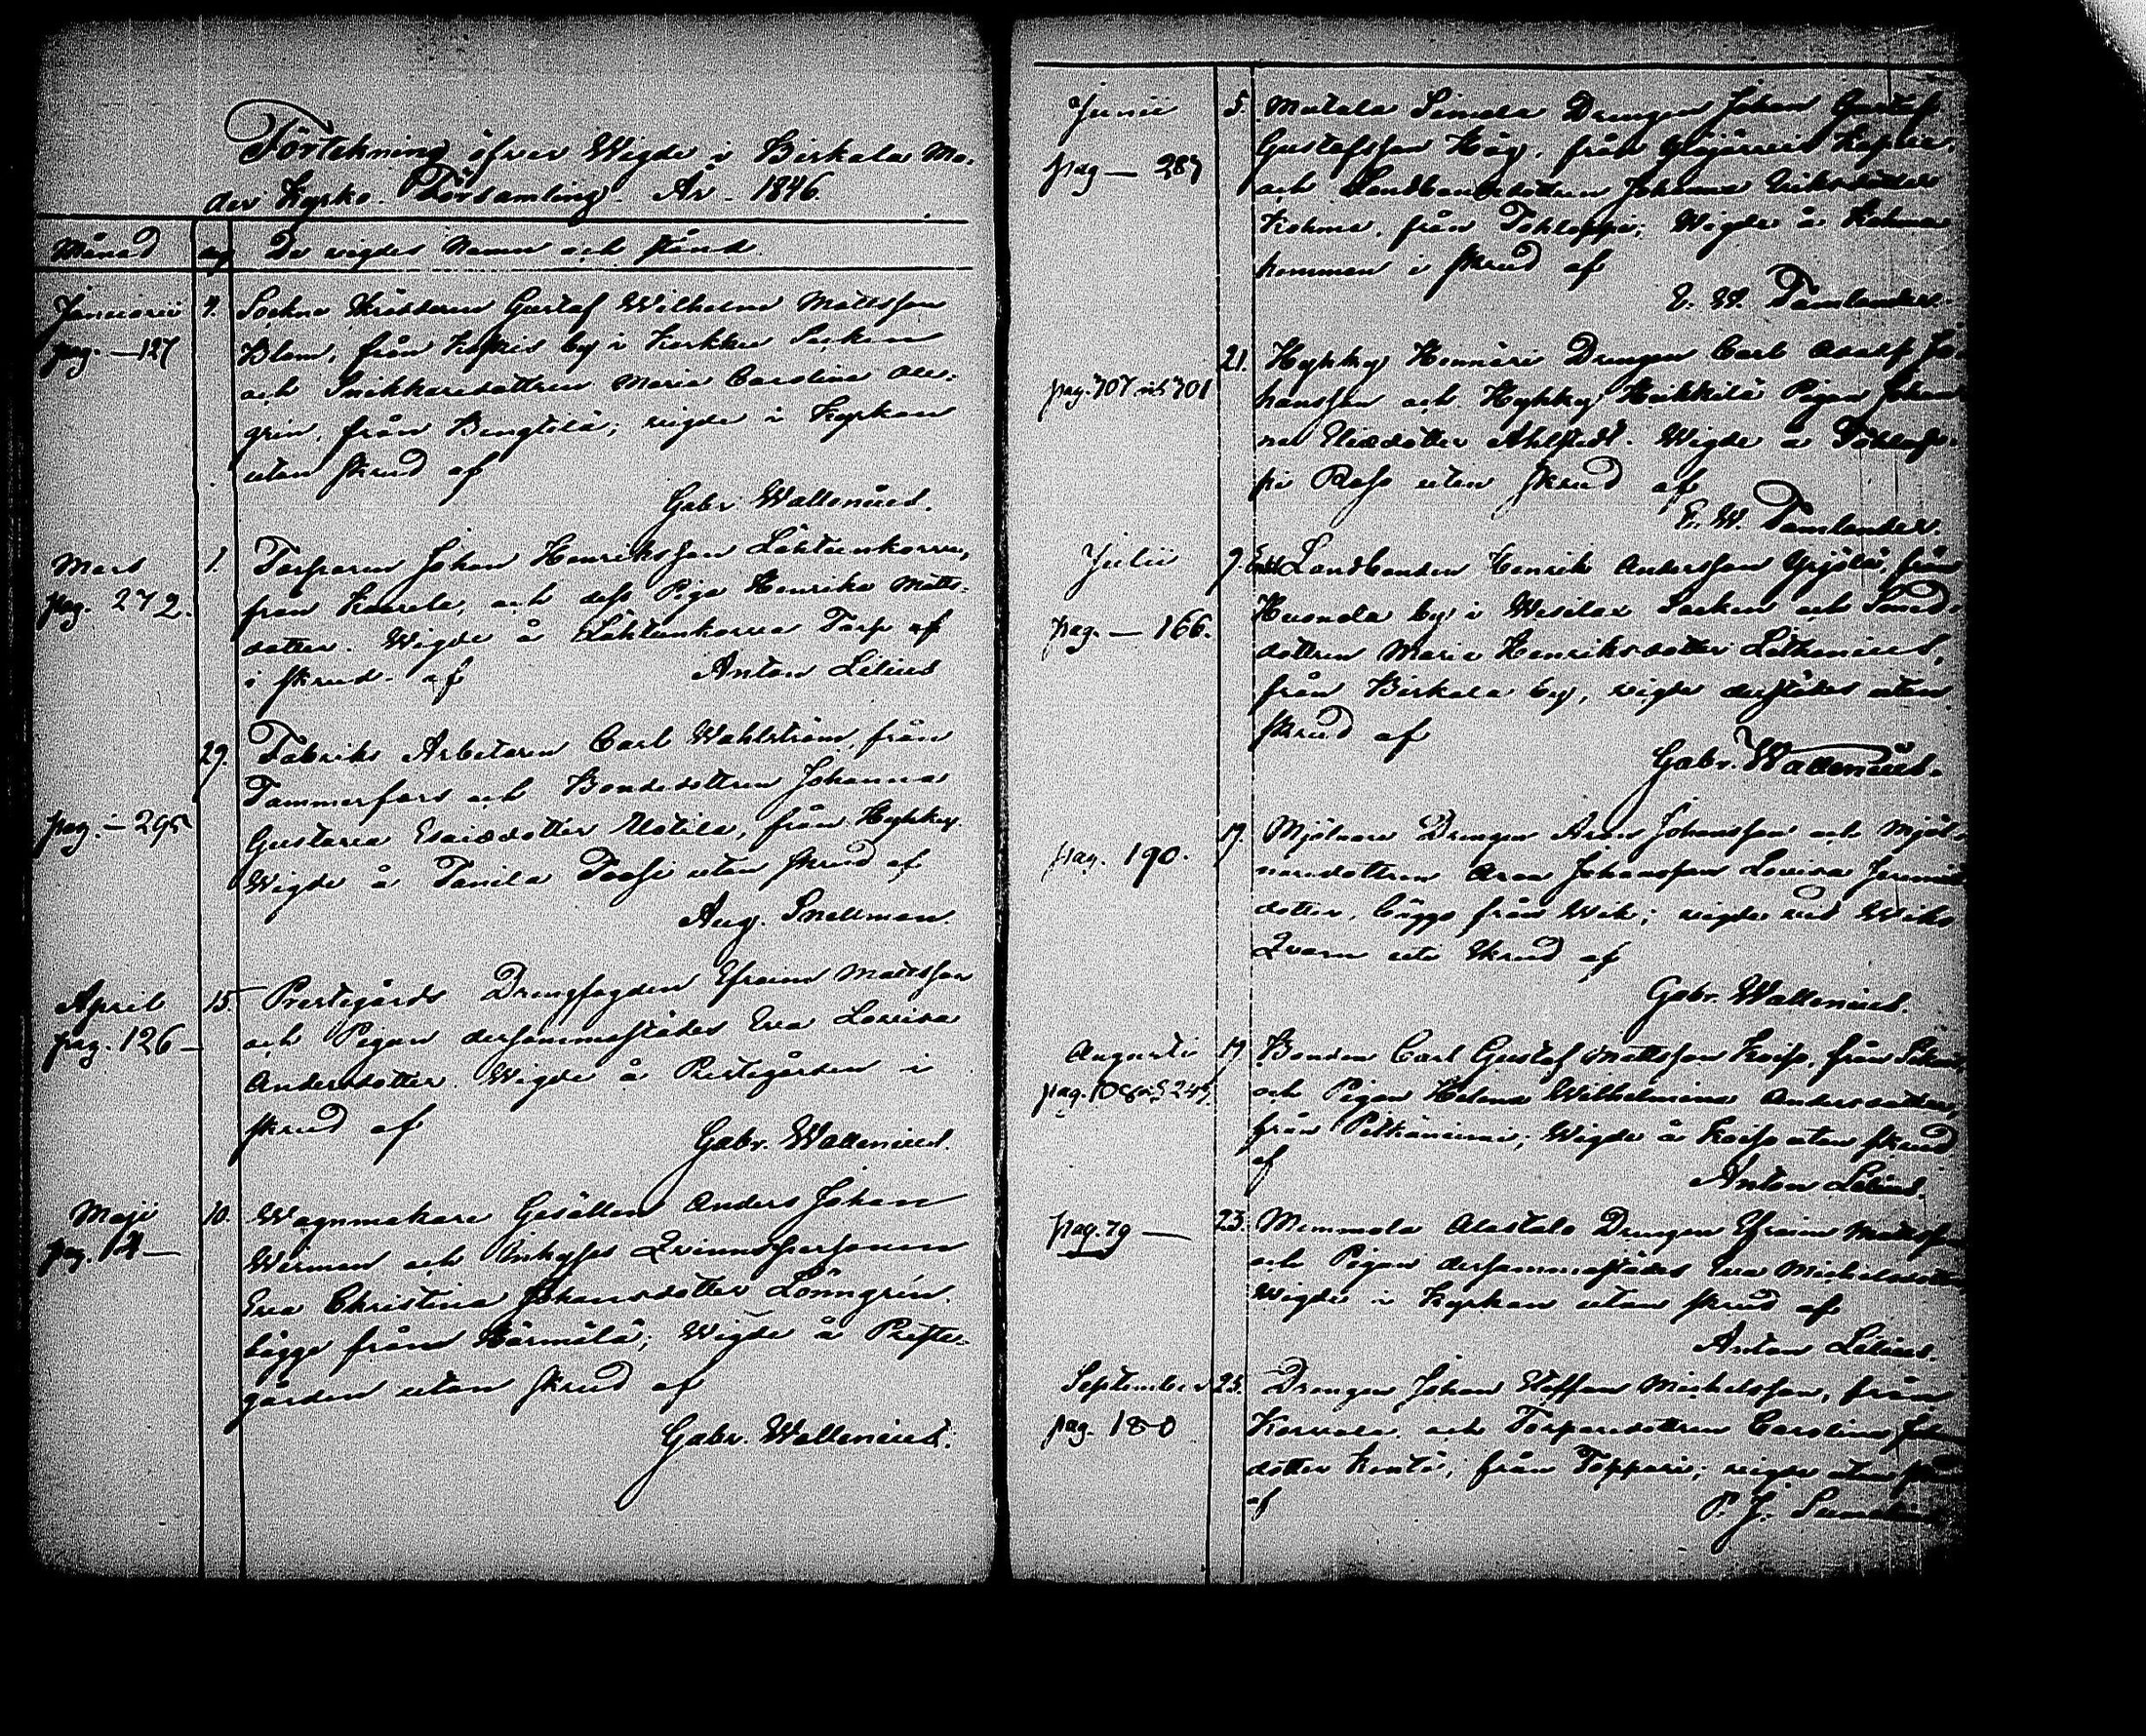 Förtekning öfver Wigde i Birkala Mo-
der Kyrko-Församling. År 1846.
Månad | De vigdes Namn och stånd.
Januarii 4. Sockne Skräddaren Gustaf Wilhelm Mattsson
pag. — 127 Blom, från by i Karkku Socken
och Snickaredottren Maria Carolina Alm-
gren, från Bengtilä; vigde i Kyrkan
utan skrud af
Gabr. Wallenius.
Mars 1. Torparen Johan Henriksson Lähteenkorva,
pag. 272. från Kaurela, och dess Piga Henrika Matts-
dotter. Wigde å Lähteenkorva Torp af
i skrud af Anton Lilius
29. Fabriks Arbetaren Carl Wahlström, från
Tammerfors och Bondedottren Johanna
pag. — 295 Gustava Esaiædotter Uotila, från Hyhky.
Wigde å Tanila utan skrud af
Aug. Snellman.
April 15. Prestegårds Drengfogden Efraim Mattsson
pag. 126 — och Pigan dersammastädes Eva Lovisa
Andersdotter. Wigde å Prestegården i
skrud af
Gabr. Wallenius.
Maji 10. Wagnmakare Gesällen Anders Johan
pag. 14 — Wirman och Inhyses Qvinnspersonen
Eva Christina Johansdotter Lönngrén.
bägge från Härmälä; Wigde å Preste-
gården utan skrud af
Gabr. Wallenius.
Junii 5. Matala Simola Drengen Johan Gustaf
pag — 287 Gustafsson Hög, från
och Landbondedottren Johanna Eriksdotter
Kohma, från Tohloppi; Wigde å Kohma
hemman i skrud af
E. W. Tamlander.
21. Hyhky Hennäri Drengen Carl Adolf Jo-
pag. 707 och 701 hansson och Hyhky Heikkilä Pigan Johan-
na Eliædotter Ahlstedt. Wigde å Tohlop-
pi utan skrud af
E. W. Tamlander.
Julii 9. Landbonden Henrik Andersson Yrjölä, från
pag. — 166. by i Wesilax Socken och
dottren Maria Henriksdotter Lithenius,
från Birkala by, vigde derstädes utan
skrud af
Gabr. Wallenius.
19. Mjölnare Drengen Aron Johansson och Mjöl-
pag. 190. naredottren Johansson Lovisa
dotter, bägge från Wik; vigde vid Wiks
Qvarn uti skrud af
Gabr. Wallenius.
Augusti 19. Bonden Carl Gustaf Mattsson Koiso, från
och Pigan Helena Wilhelmina Andersdotter,
från Pitkäniemi; Wigde å Koiso utan skrud
af Anton Lilius.
pag. 79 — 23. Mommola Alastalo Drengen Efraim Mattsson
och Pigan dersammastädes Eva Michelsdotter
Wigde i Kyrkan utan skrud af
Anton Lilius.
September 25. Drengen Johan Steffan Michelsson, från
pag. 180 Korvola och Torparedottren Carolina
dotter från Toppari; vigde utan
af P. J.